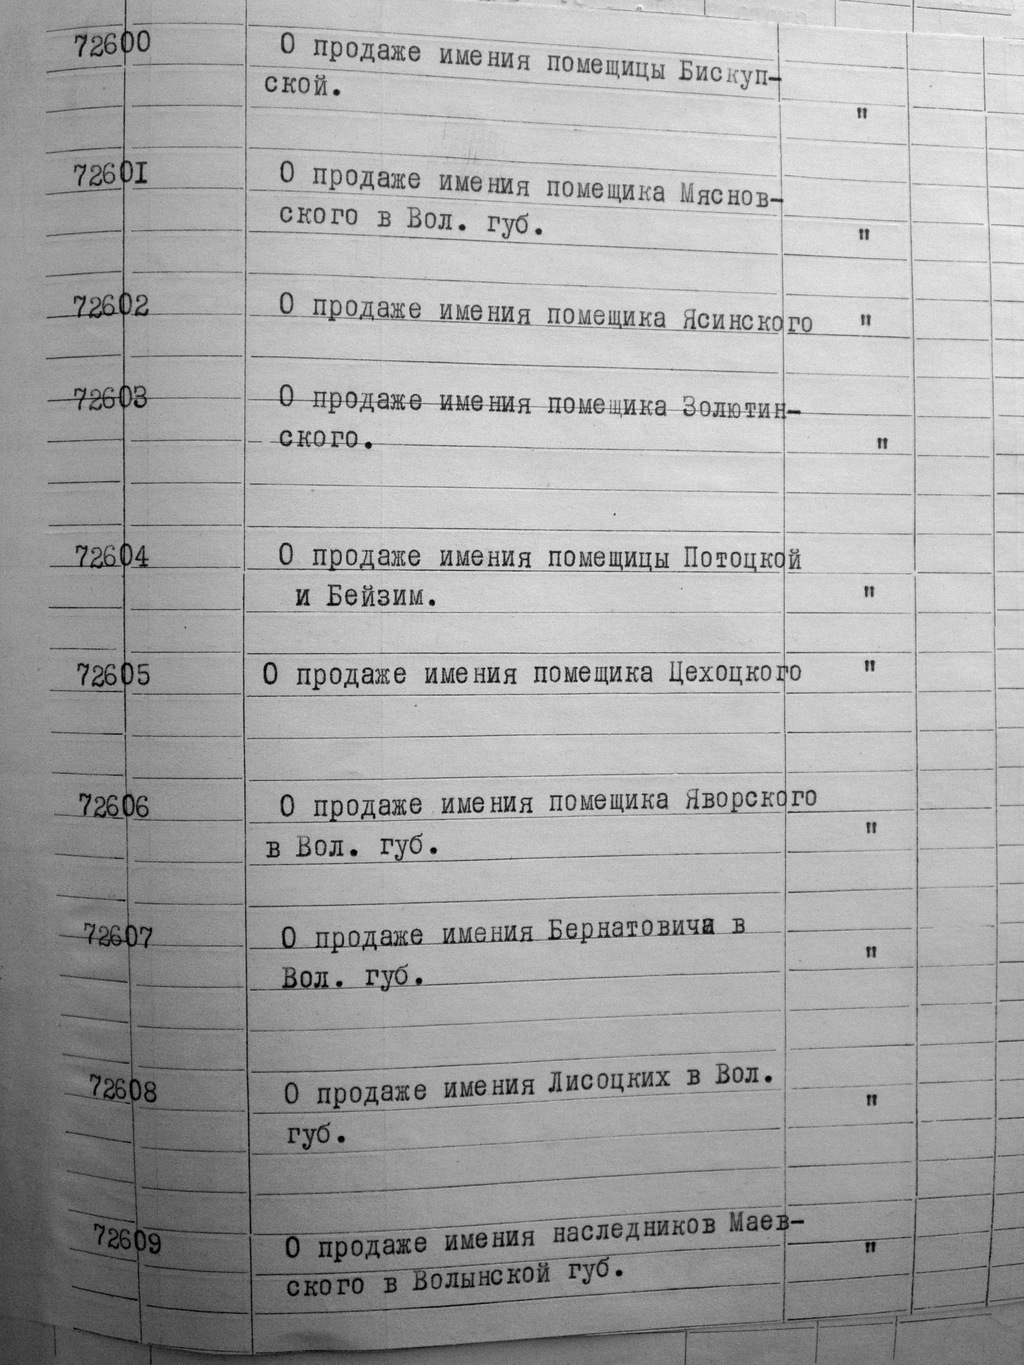 72600 О продаже имения помещицы Бискуп-
ской. "
72601 О продаже имения помещика Мяснов-
ского в Вол. губ. "
72602 О продаже имения помещика Ясинского "
72603 О продаже имения помещика Золютин-
ского. "
72604 О продаже имения помещицы Потоцкой
и Бейзим. "
72605 О продаже имения помещика Цехоцкого "
72606 О продаже имения помещика Яворского
в Вол. губ. "
72607 О продаже имения Бернатовича в
Вол. губ. "
72608 О продаже имения Лисоцких в Вол.
губ. "
72609 О продаже имения наследников Маев-
ского в Волынской губ. "